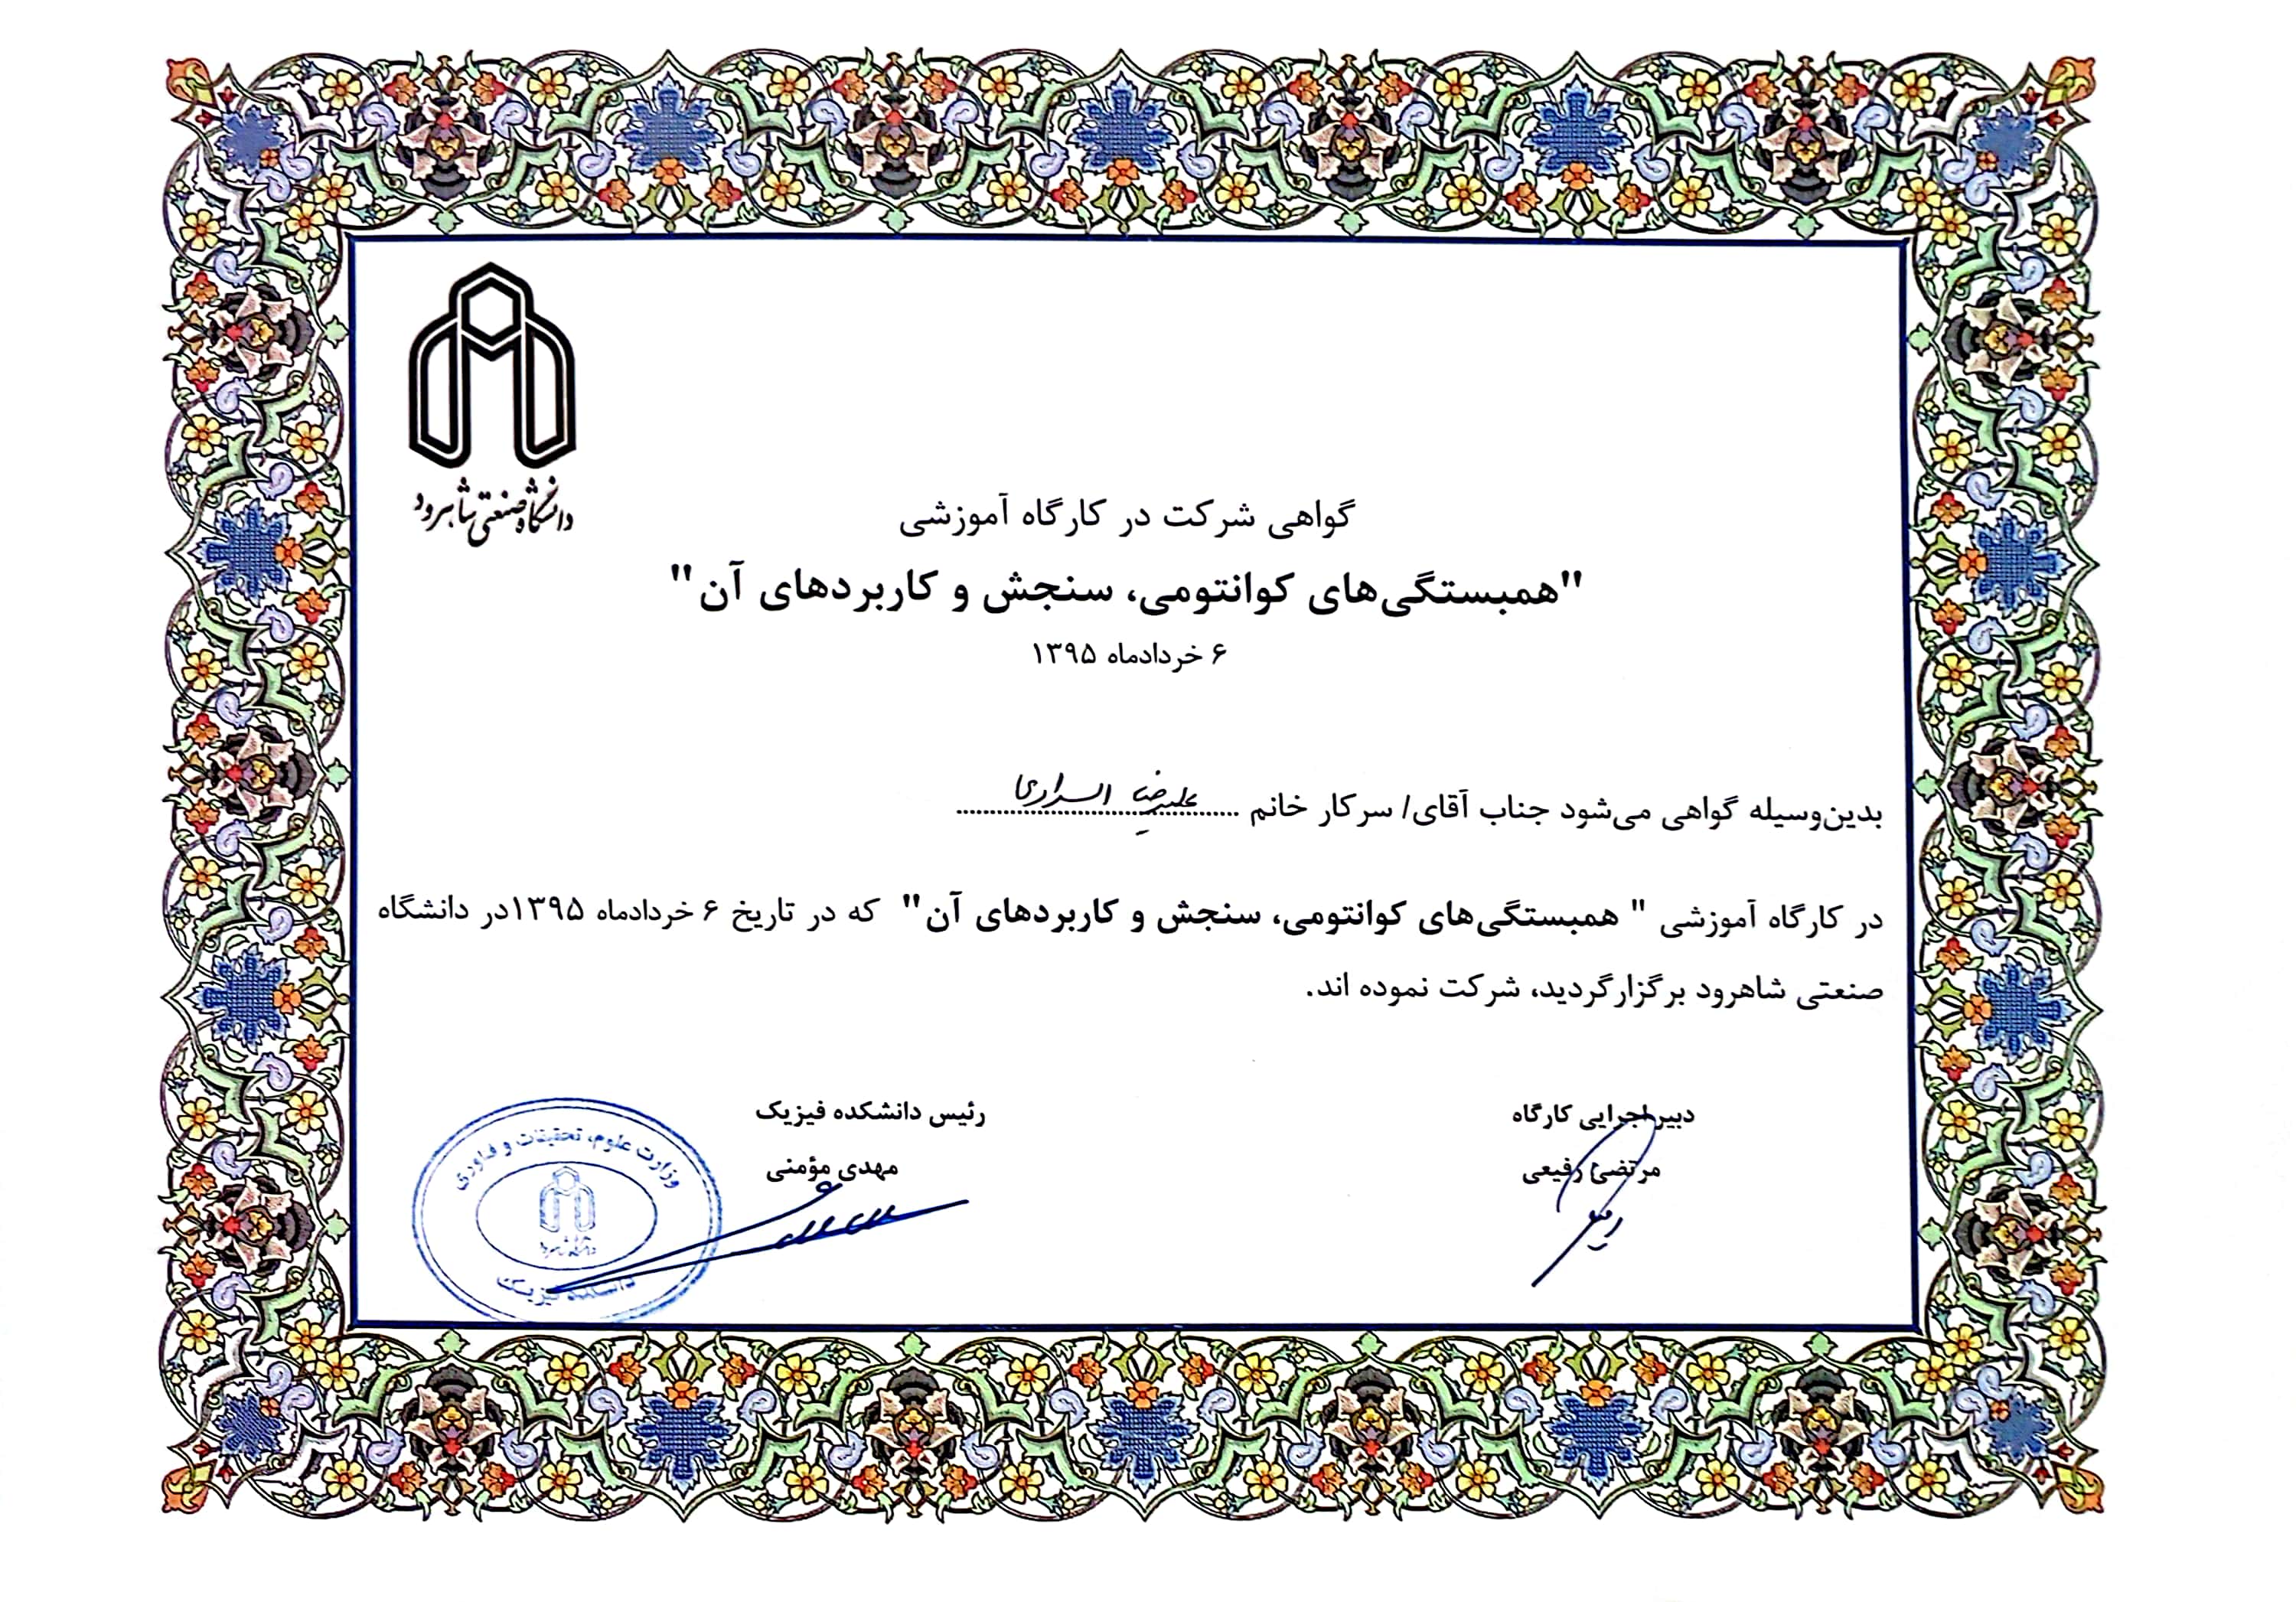 دانشگاه صنعتی شاهرود
گواهی شرکت در کارگاه آموزشی
"همبستگی‌های کوانتومی، سنجش و کاربردهای آن"
۶ خردادماه ۱۳۹۵
بدین‌وسیله گواهی می‌شود جناب آقای/ سرکار خانم علیرضا
در کارگاه آموزشی " همبستگی‌های کوانتومی، سنجش و کاربردهای آن" که در تاریخ ۶ خردادماه ۱۳۹۵در دانشگاه
صنعتی شاهرود برگزارگردید، شرکت نموده اند.
دبیر اجرایی کارگاه
مرتضی رفیعی
رئیس دانشکده فیزیک
مهدی مؤمنی
وزارت علوم، تحقیقات و فناوری
دانشگاه صنعتی شاهرود
دانشکده فیزیک